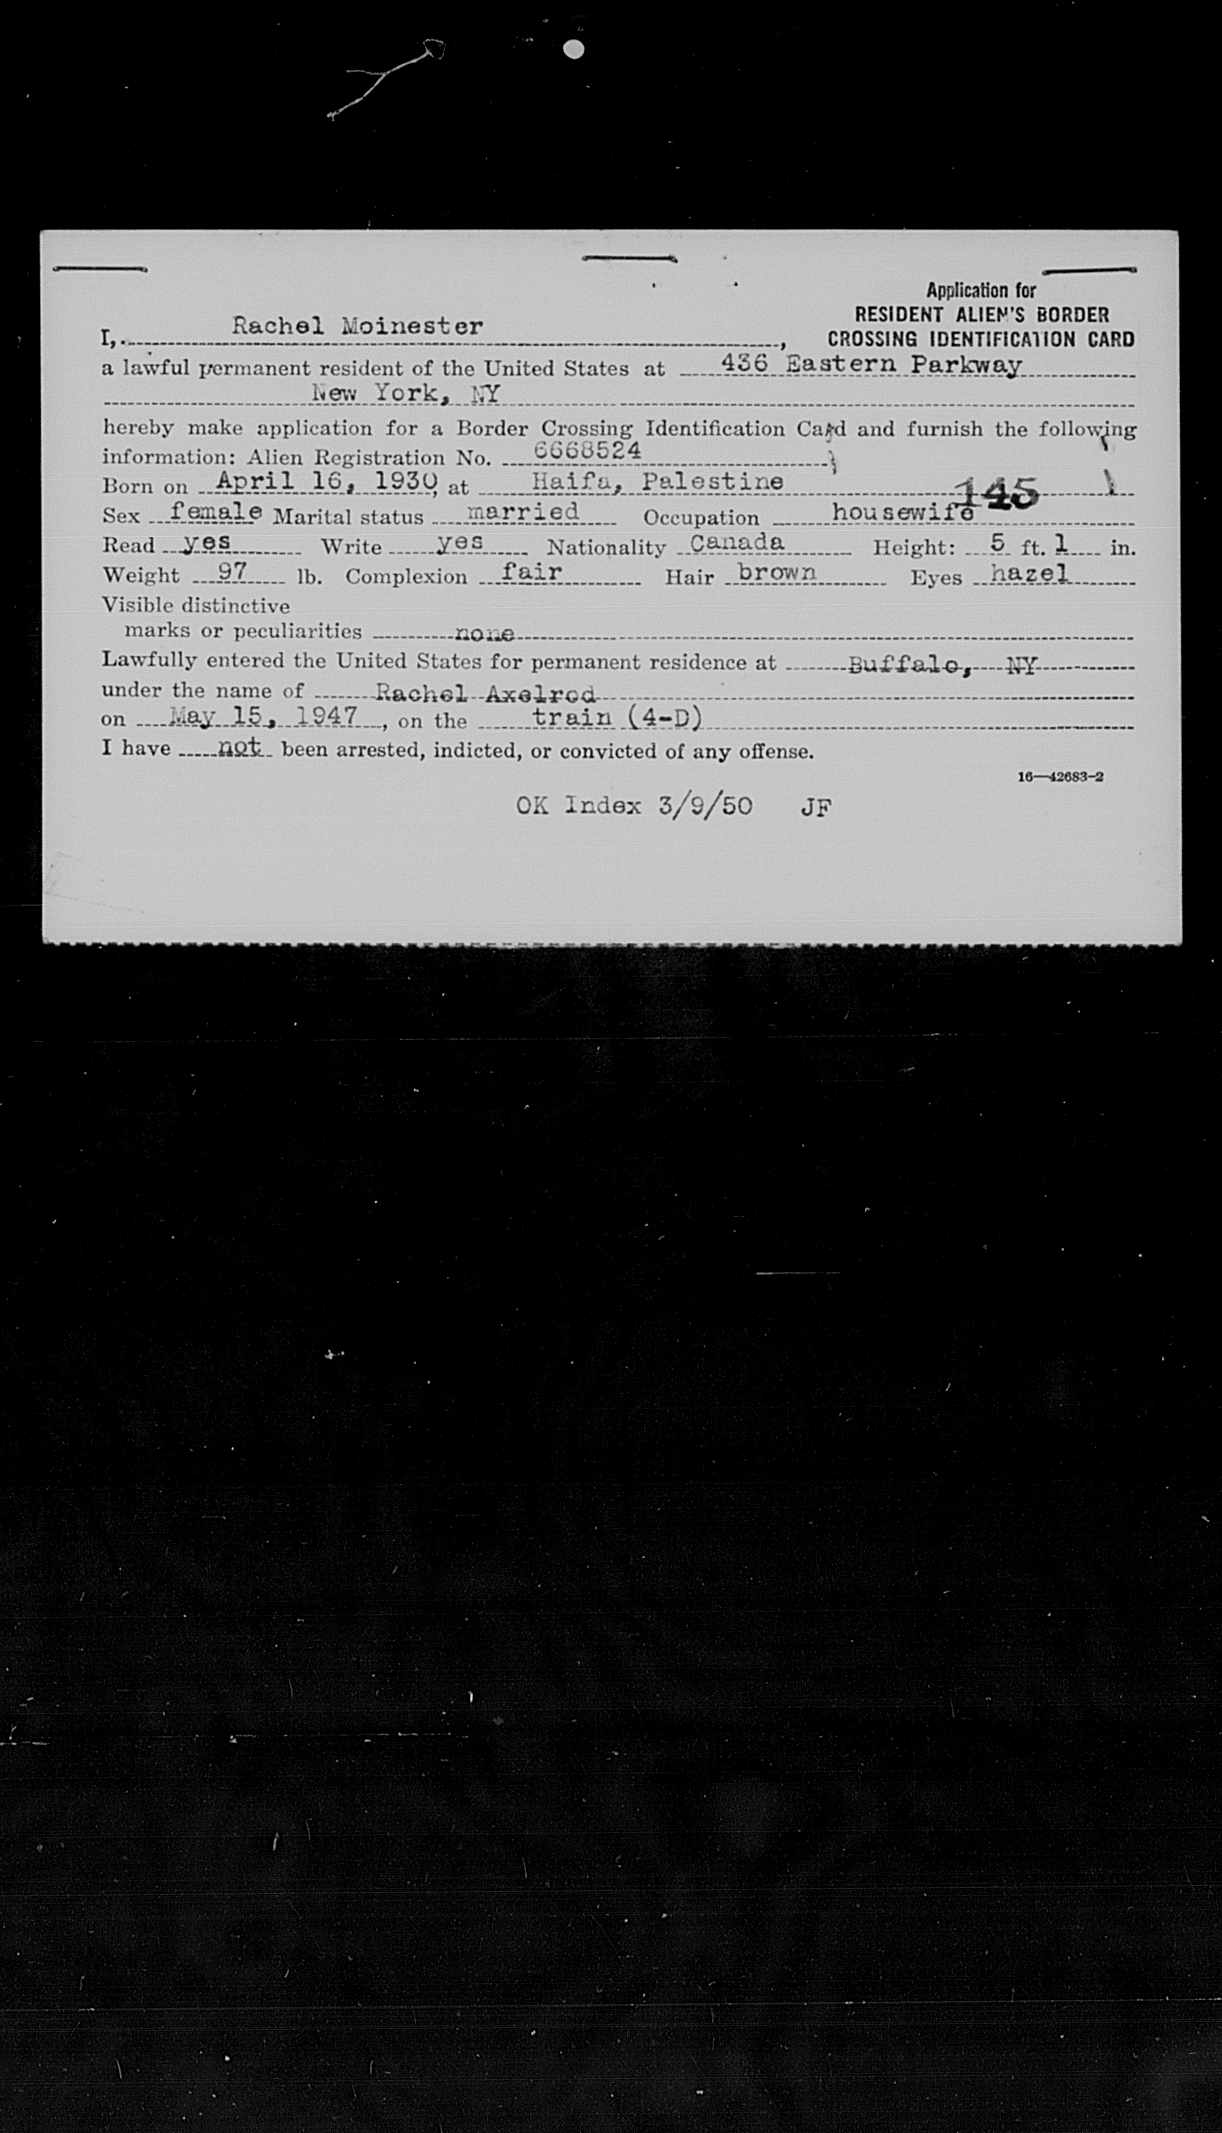 Application for
RESIDENT ALIEN'S BORDER
CROSSING IDENTIFICATION CARD
I, Rachel Moinester,
a lawful permanent resident of the United States at 436 Eastern Parkway
New York, NY
hereby make application for a Border Crossing Identification Card and furnish the following
information: Alien Registration No. 6668524
Born on April 16, 1930, at Haifa, Palestine
145
Sex female Marital status married Occupation housewife
Read yes Write yes Nationality Canada Height: 5 ft. 1 in.
Weight 97 lb. Complexion fair Hair brown Eyes hazel
Visible distinctive
marks or peculiarities none
Lawfully entered the United States for permanent residence at Buffalo, NY
under the name of Rachel Axelrod
on May 15, 1947, on the train (4-D)
I have not been arrested, indicted, or convicted of any offense.
16—42683-2
OK Index 3/9/50 JF